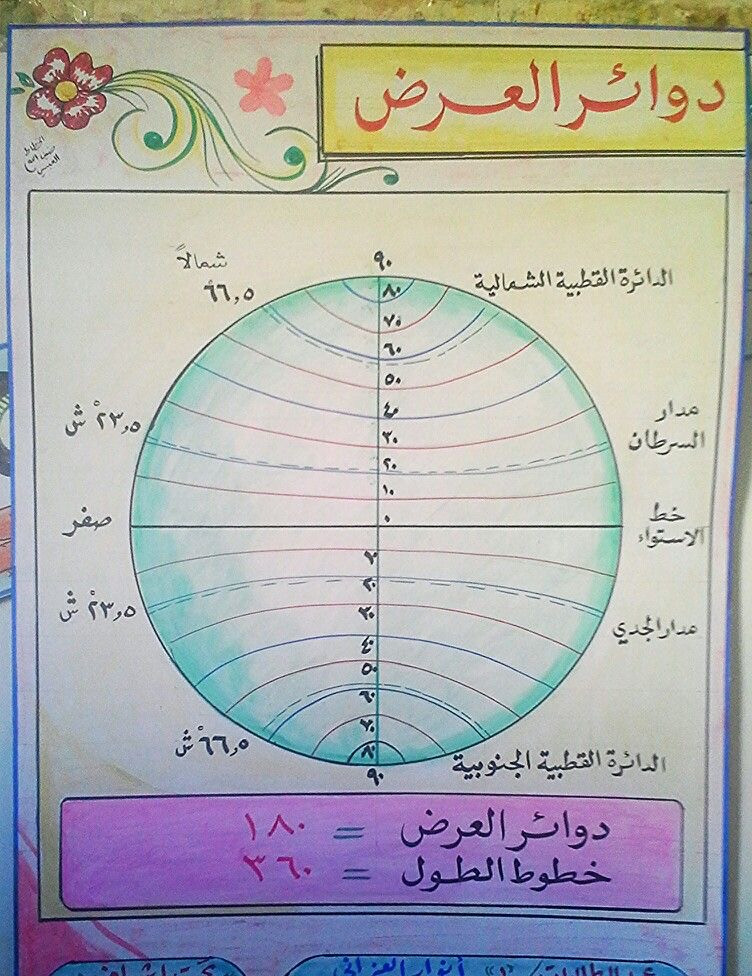 دوائر العرض
٩٠
شمالاً
٦٦,٥
الدائرة القطبية الشمالية
٨٠
٧٠
٦٠
٥٠
٤٠
٣٠
٢٠
١٠
٠
٢٣,٥° ش
مدار
السرطان
صفر
خط
الاستواء
١٠
٢٠
٣٠
٤٠
٥٠
٦٠
٧٠
٨٠
٩٠
٢٣,٥° ش
مدار الجدي
٦٦,٥° ش
الدائرة القطبية الجنوبية
دوائر العرض = ١٨٠
خطوط الطول = ٣٦٠